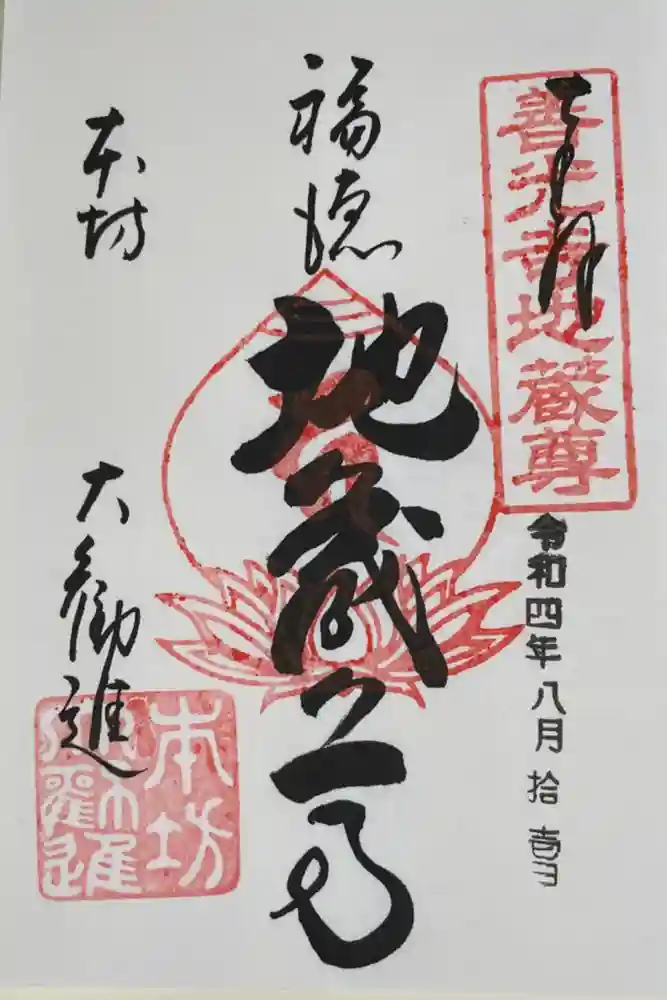 奉拝
善光寺地蔵尊
令和四年八月拾壱日
福徳
地蔵尊
本坊
大勧進
本坊